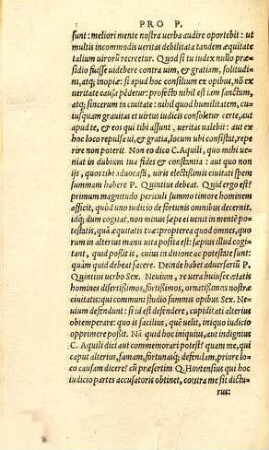 PRO P.
sunt: meliori mente nostra uerba audire oportebit: ut
multis incommodis ueritas debilitata tandem æquitate
talium uirorū recreetur. Quod si tu iudex nullo præ-
sidio fuisse uidebere contra uim, & gratiam, solitudi-
ni, atq; inopiæ: si apud hoc consilium ex opibus, nō ex
ueritate causa pēdetur: profecto nihil est iam sanctum,
atq; sincerum in ciuitate: nihil quod humilitatem, cu-
iusquam grauitas et uirtus iudicis consoletur certe, aut
apud te, & eos qui tibi assunt, ueritas ualebit: aut ex
hoc loco repulsa ui, & gratia, locum ubi consistat, repe
rire non poterit. Non eo dico C. Aquili, quo mihi ue-
niat in dubium tua fides & constantia: aut quo non
ijs, quos tibi aduocasti, uiris electissimis ciuitati spem
summam habere P. Quintius debeat. Quid ergo est?
primum magnitudo periculi summo timore hominem
afficit, quod uno iudicio de fortunis omnibus decernit.
idq; dum cogitat, non minus sæpe ei uenit in mentē po-
testatis, quàm æquitatis tuæ: propterea quòd omnes, quo
rum in alterius manu uita posita est: sæpius illud cogi-
tant, quid possit is, cuius in ditione ac potestate sunt:
quàm quid debeat facere. Deinde habet aduersariū P.
Quintius uerbo Sex. Neuium, re uera huiusce ætatis
homines disertissimos, fortissimos, ornatissimos nostræ
ciuitatis: qui communi studio summis opibus Sex. Ne-
uium defendunt: si id est defendere, cupiditati alterius
obtemperare: quo is facilius, quē uelit, iniquo iudicio
opprimere possit. Nā quid hoc iniquius, aut indignius
C. Aquili dici aut commemorari potest? quàm me, qui
caput alterius, famam, fortunasq; defendam, priore lo-
co causam dicere? cū præsertim Q. Hortensius qui hoc
iudicio partes accusatoris obtinet, contra me sit dictu-
rus: